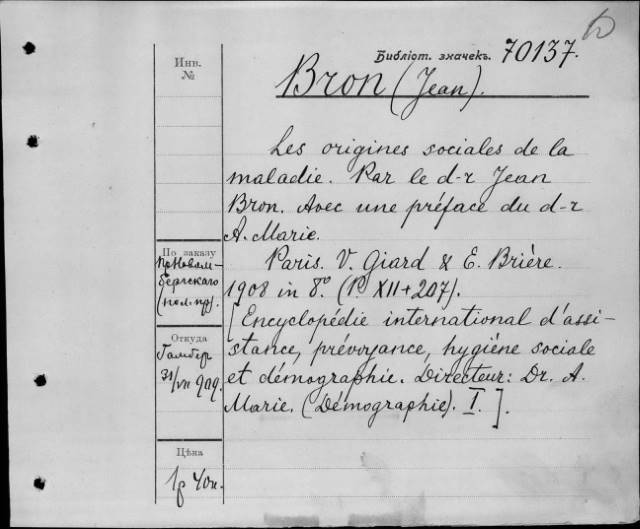 Библіот. значекъ. 70137.
Bron (Jean).
Инв.
№
Les origines sociales de la
maladie. Par le d-r Jean
Bron. Avec une préface du d-r
A. Marie.
Paris. V. Giard & E. Brière.
1908 in 8º. (P. XII+207).
[Encyclopédie international d'assi-
stance, prévoyance, hygiène sociale
et démographie. Directeur: Dr. A.
Marie. (Démographie). I.].
По заказу
пр Новом-
бергскаго
(пол. пр).
Откуда
Гамбер
31/VII 909.
Цѣна
1р 40к.